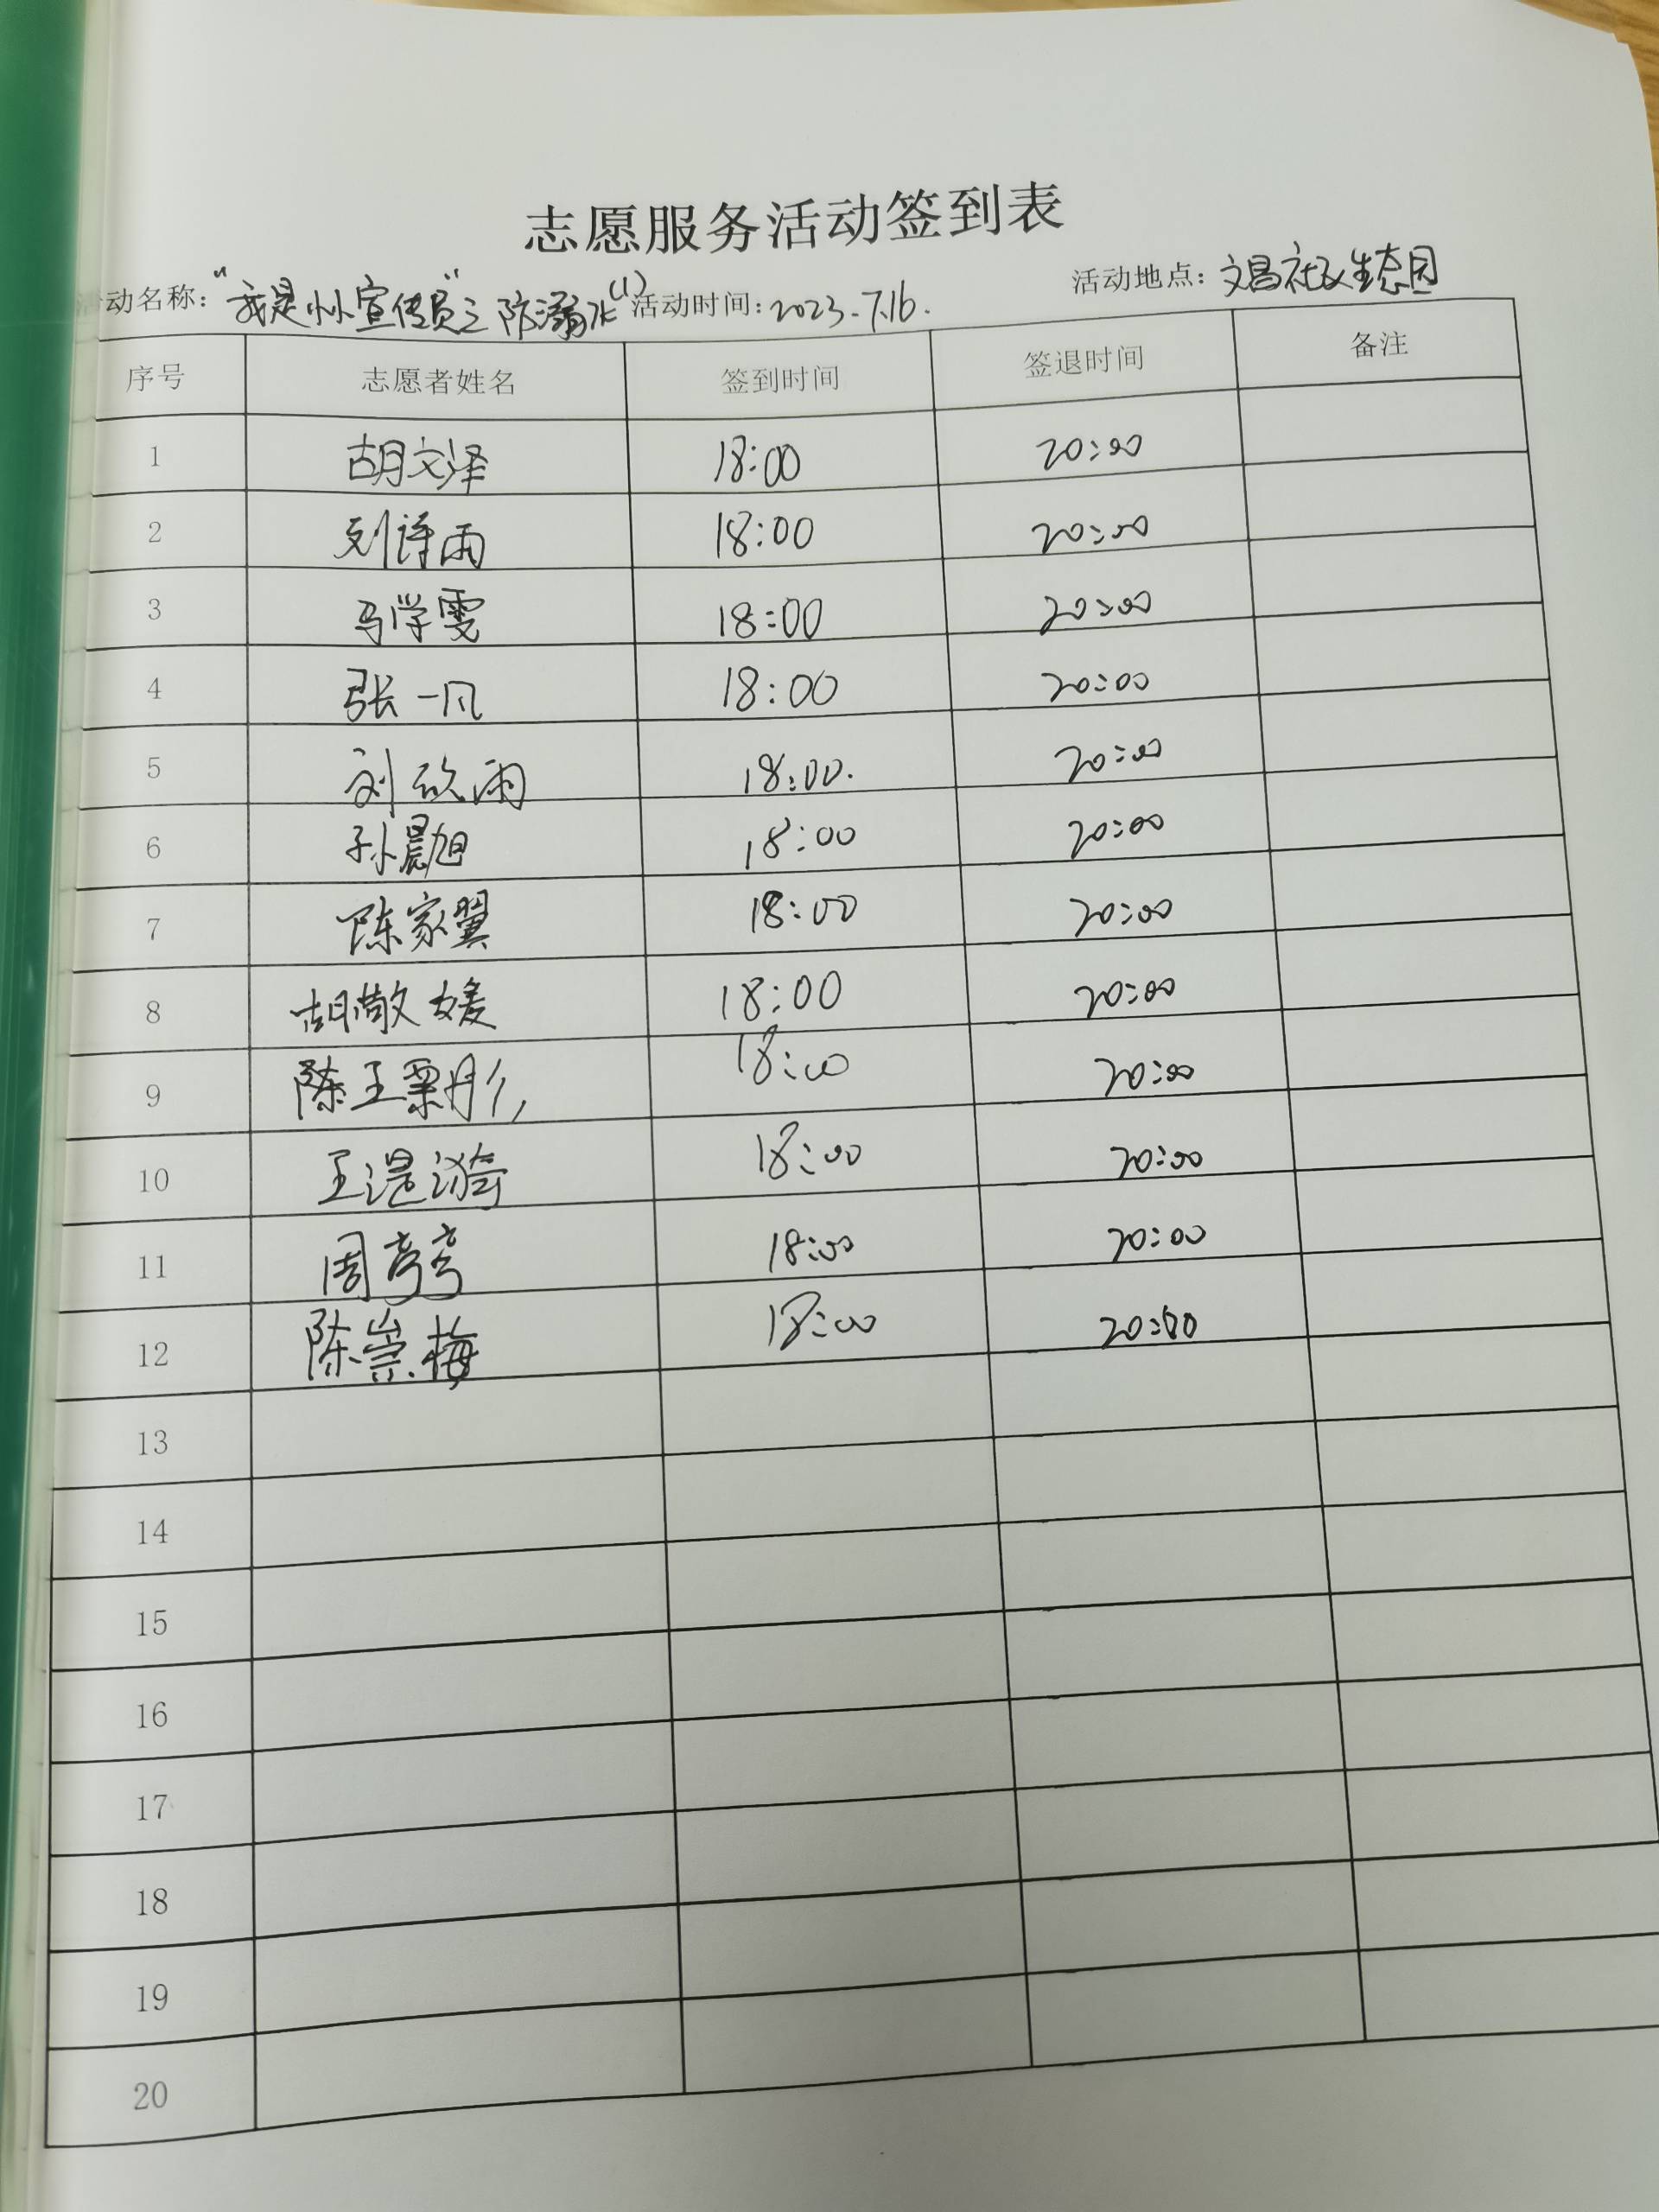 志愿服务活动签到表
活动名称:“我是小小宣传员”之防溺水(1) 活动时间:2023.7.16. 活动地点:文昌社区生态园
序号 志愿者姓名 签到时间 签退时间 备注
1 胡文泽 18:00 20:00
2 刘诗雨 18:00 20:00
3 马学雯 18:00 20:00
4 张一凡 18:00 20:00
5 刘欣雨 18:00. 20:00
6 孙晨旭 18:00 20:00
7 陈家翼 18:00 20:00
8 胡敬媛 18:00 20:00
9 陈王 18:00 20:00
10 王漪 18:00 20:00
11 周 18:00 20:00
12 陈崇梅 18:00 20:00
13
14
15
16
17
18
19
20